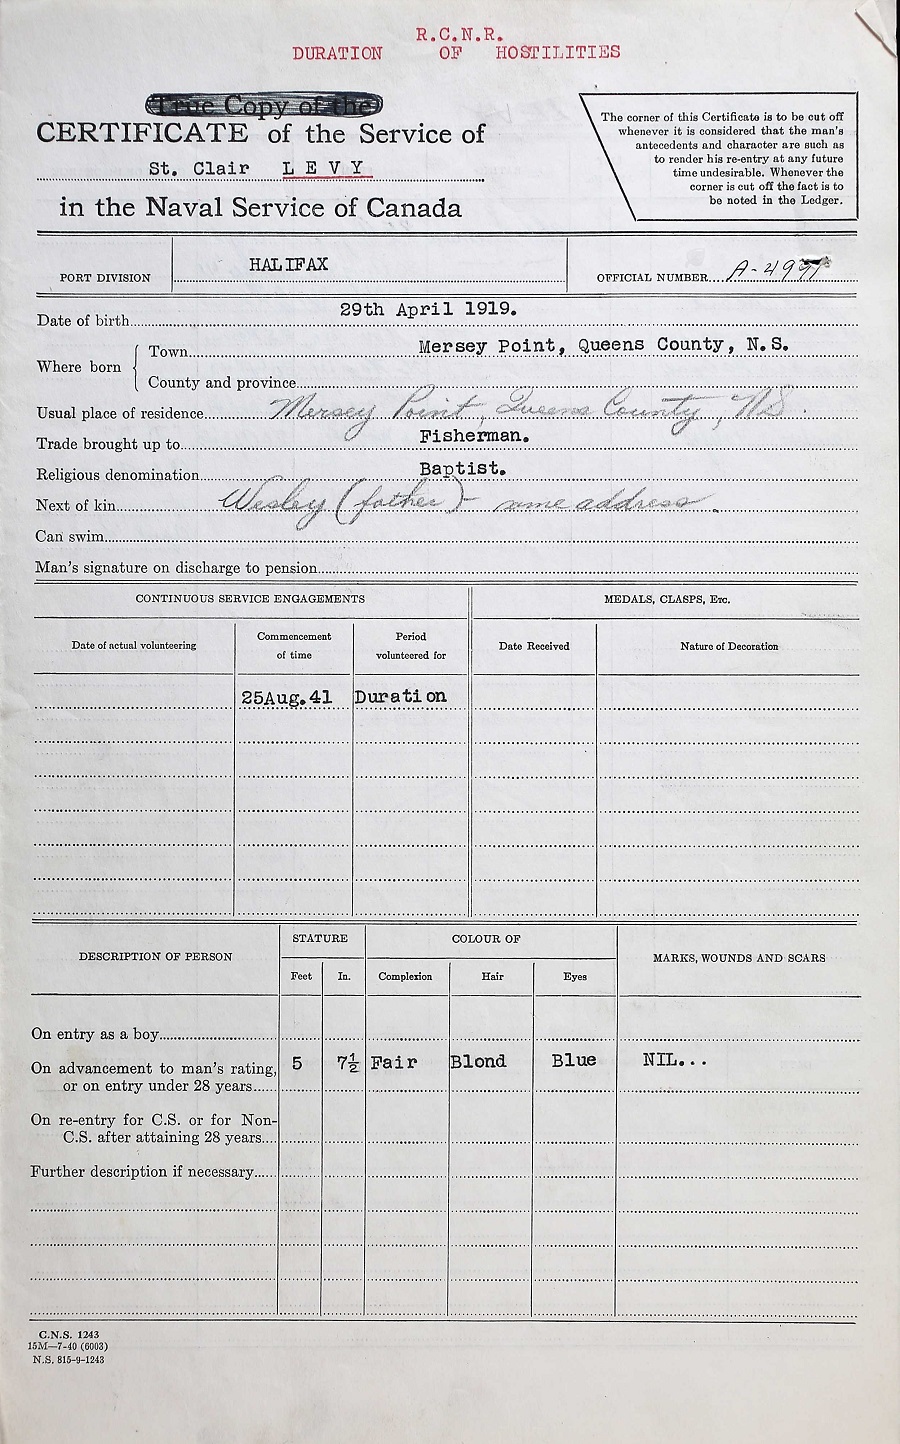 R.C.N.R.
DURATION OF HOSTILITIES
True Copy of the
CERTIFICATE of the Service of
St. Clair LEVY
in the Naval Service of Canada
The corner of this Certificate is to be cut off
whenever it is considered that the man's
antecedents and character are such as
to render his re-entry at any future
time undesirable. Whenever the
corner is cut off the fact is to
be noted in the Ledger.
PORT DIVISION HALIFAX OFFICIAL NUMBER A-499
Date of birth 29th April 1919.
Where born
Town Mersey Point, Queens County, N.S.
County and province
Usual place of residence Mersey Point, Queens County, NS.
Trade brought up to Fisherman.
Religious denomination Baptist.
Next of kin Wesley (father) - same address.
Can swim
Man's signature on discharge to pension
CONTINUOUS SERVICE ENGAGEMENTS MEDALS, CLASPS, Etc.
Date of actual volunteering Commencement of time Period volunteered for Date Received Nature of Decoration
25Aug.41 Duration
DESCRIPTION OF PERSON STATURE COLOUR OF MARKS, WOUNDS AND SCARS
Feet In. Complexion Hair Eyes
On entry as a boy
On advancement to man's rating, 5 7½ Fair Blond Blue NIL...
or on entry under 28 years
On re-entry for C.S. or for Non-
C.S. after attaining 28 years
Further description if necessary
C.N.S. 1243
15M—7-40 (6003)
N.S. 815-9-1243